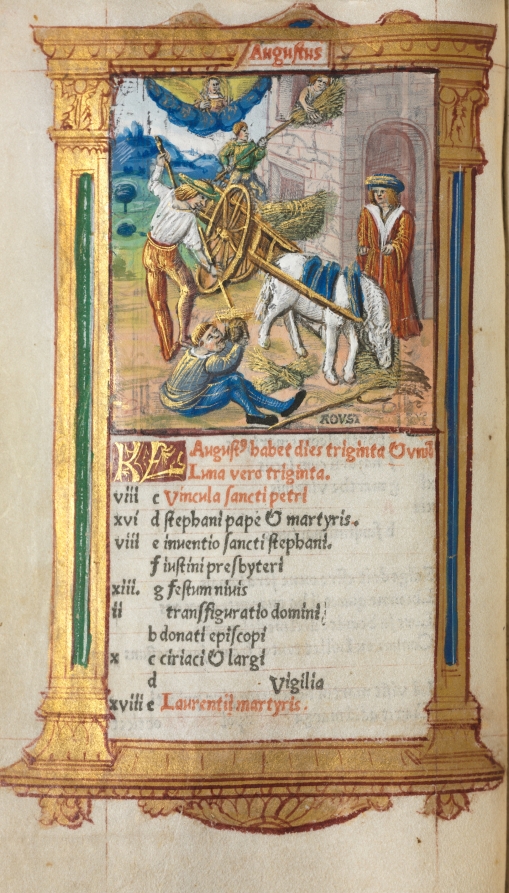 Augustus
AOVST
KL Augustꝰ habet dies triginta & vnū
Luna vero triginta.
viii c Vincula sancti petri
xvi d stephani pape & martyris.
viii e inuentio sancti stephani.
f iustini presbyteri
xiii. g festum niuis
ii transfiguratio domini
b donati episcopi
x c ciriaci & largi
d Vigilia
xviii e Laurentii martyris.